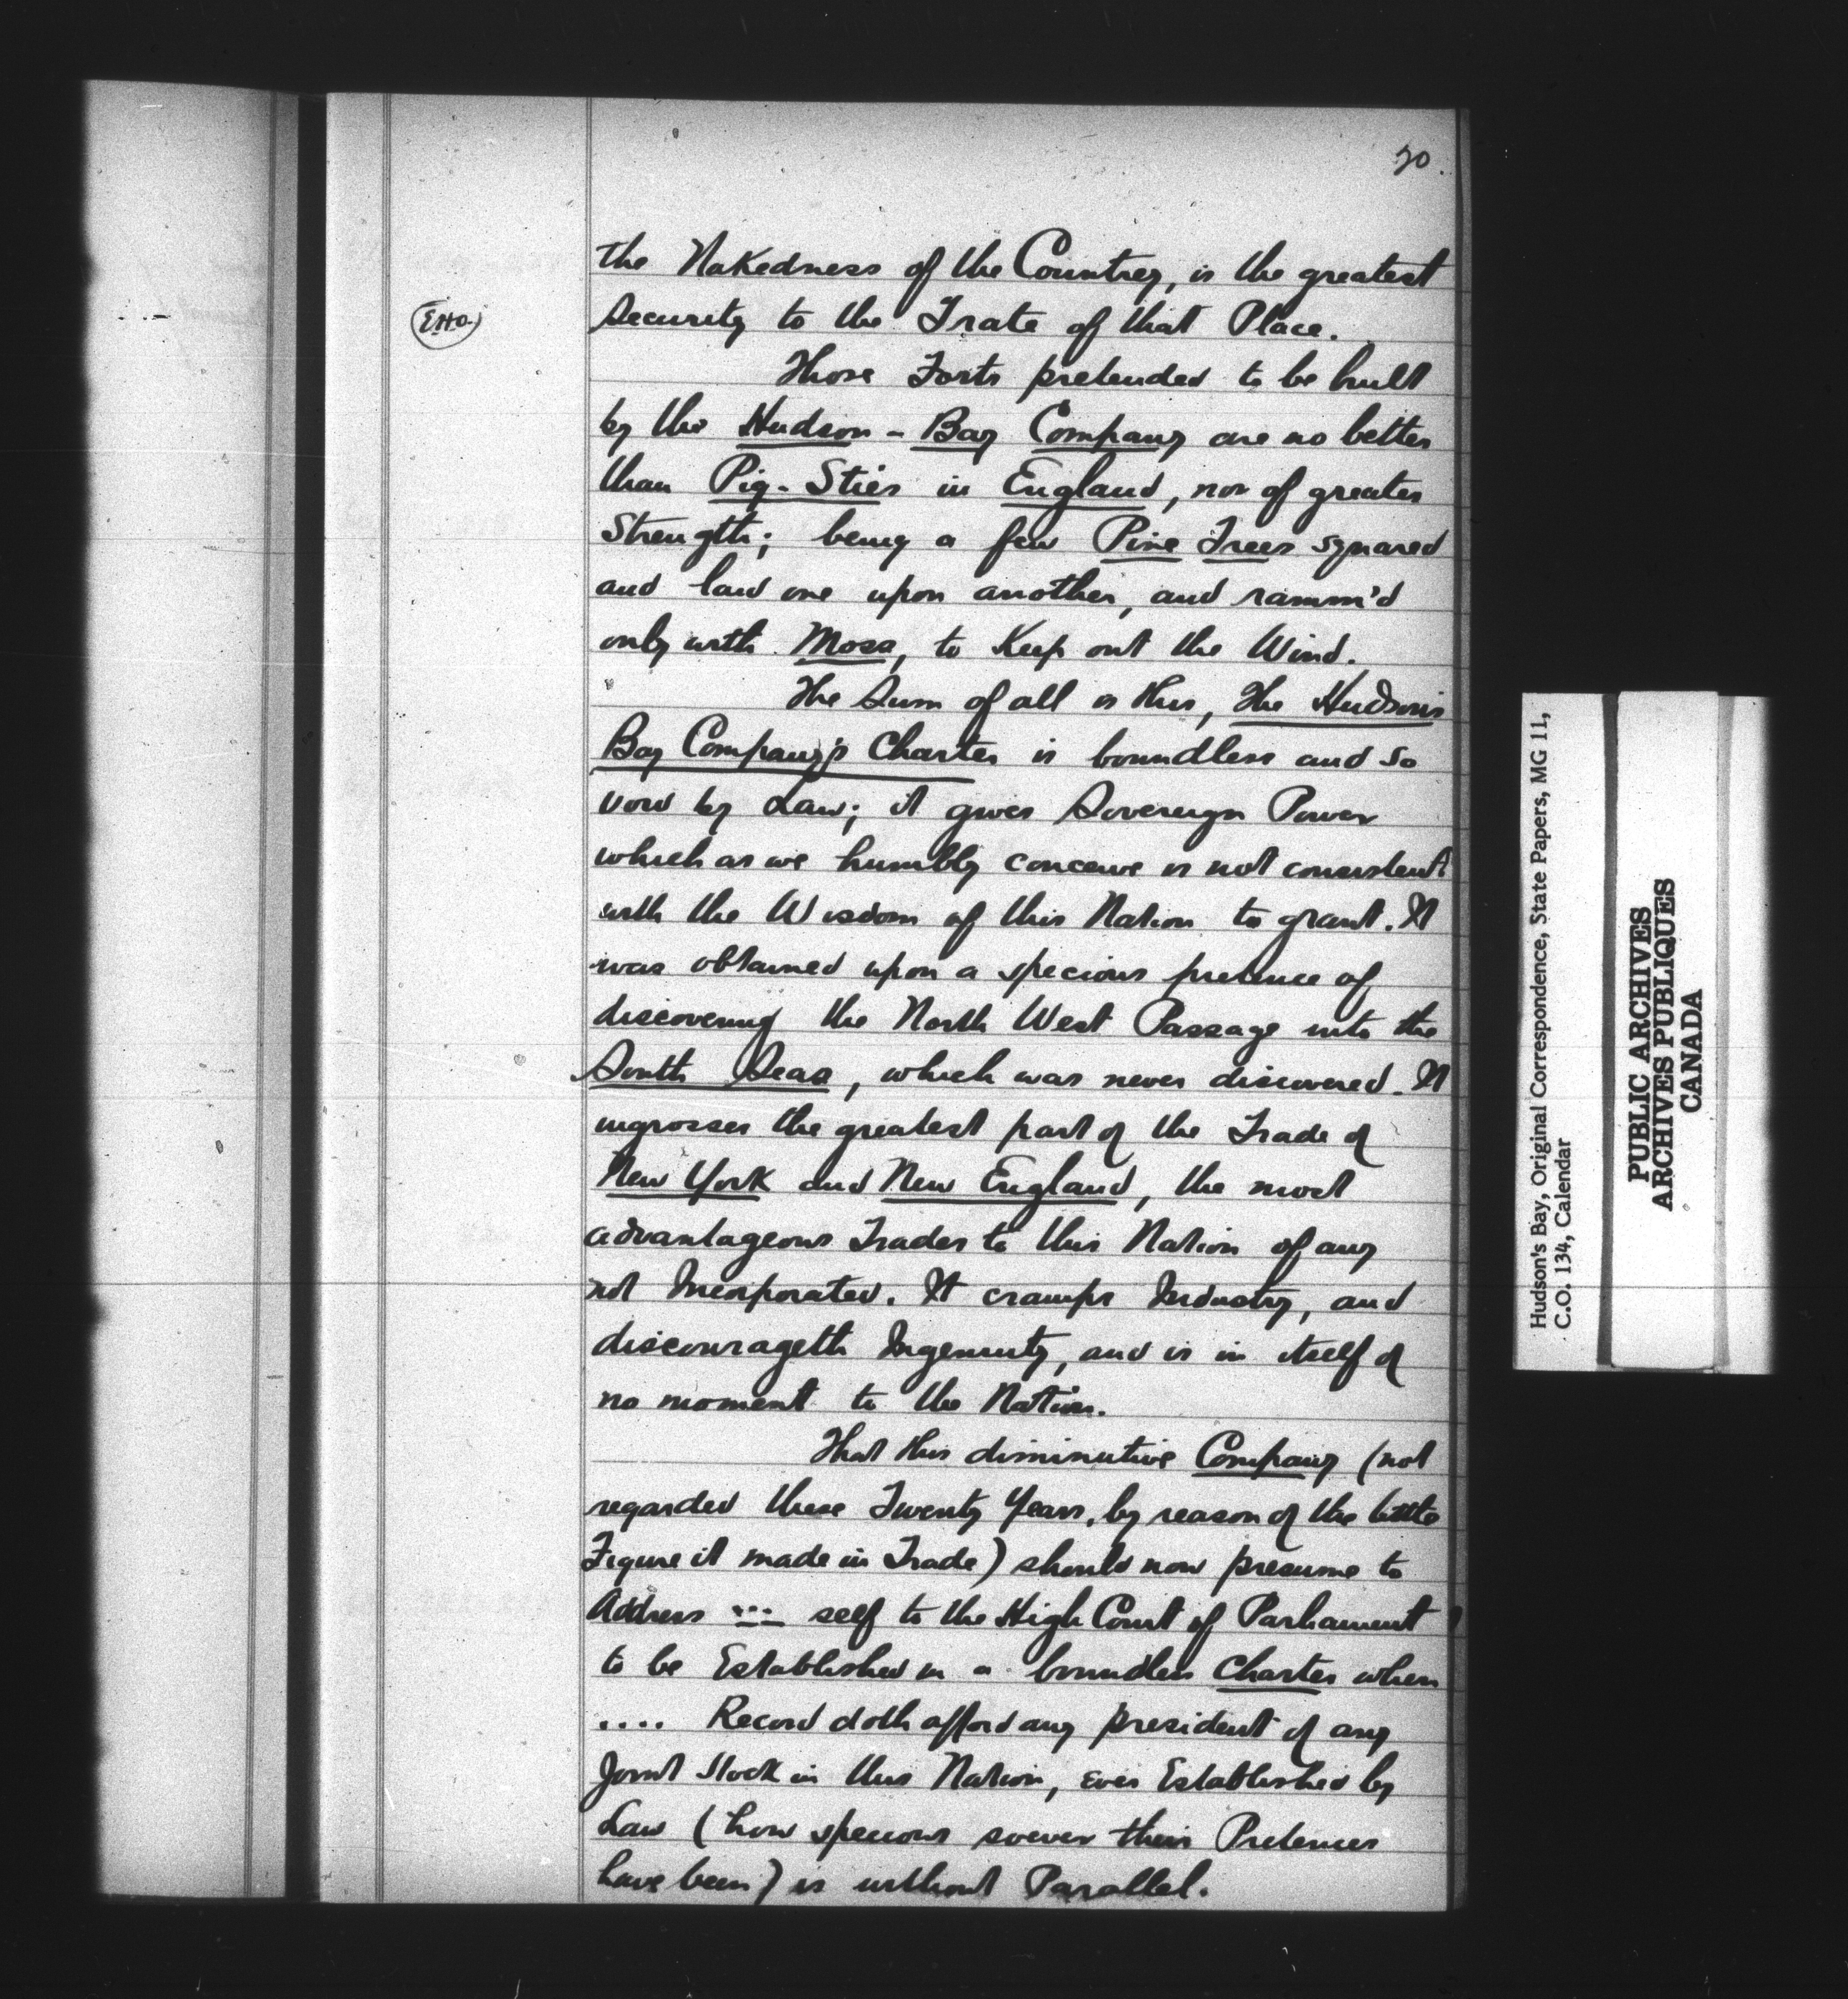 20.
the Nakedness of the Countrey, is the greatest
Security to the Trate of that Place.
Those Forts pretended to be built
by the Hudson - Bay Company are no better
than Pig-Sties in England, nor of greater
Strength; being a few Pine Trees squared
and laid one upon another, and ramm'd
only with Moss, to Keep out the Wind.
The Sum of all is this, The Hudson's
Bay Company's Charter is boundless and so
void by Law; it gives Sovereign Power
which as we humbly conceive is not consistent
with the Wisdom of this Nation to grant. It
was obtained upon a specious pretence of
discovering the North West Passage into the
South Seas, which was never discovered. It
ingrosses the greatest part of the Trade of
New York and New England, the most
advantageous Trades to this Nation of any
not Incorporated. It cramps Industry, and
discourageth Ingenuity, and is in itself of
no moment to the Nation.
That this diminutive Company (not
regarded these Twenty Years, by reason of the little
Figure it made in Trade) should now presume to
Address ... self to the High Court of Parliament
to be Established in a boundless Charter when
.... Record doth afford any president of any
Joint Stock in this Nation, ever Established by
Law (how specious soever their Pretences
have been) is without Parallel.
Hudson's Bay, Original Correspondence, State Papers, MG 11,
C.O. 134, Calendar
PUBLIC ARCHIVES
ARCHIVES PUBLIQUES
CANADA